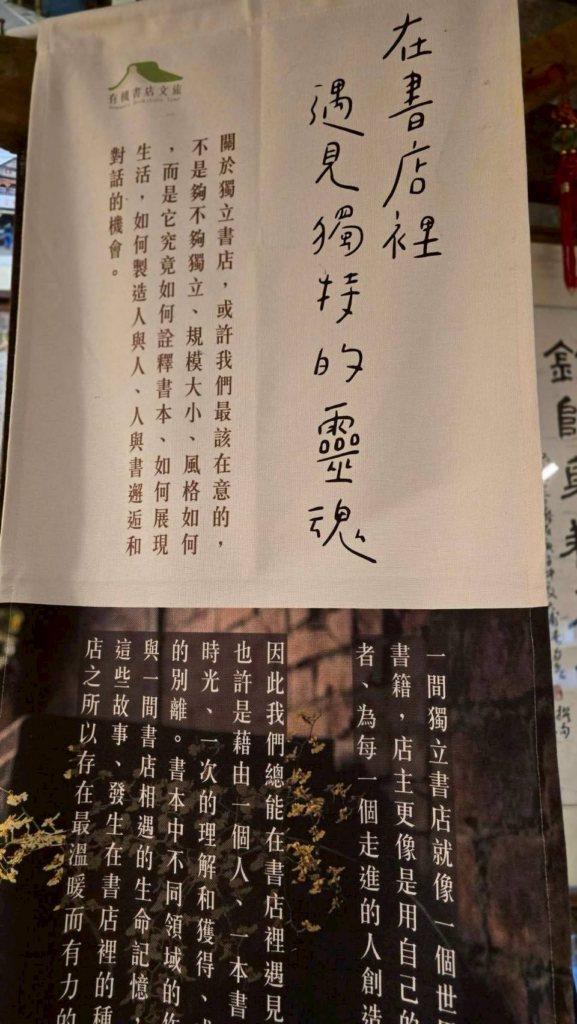 在書店裡
遇見獨特的靈魂
有機書店文旅
關於獨立書店，或許我們最該在意的，
不是夠不夠獨立、規模大小、風格如何
，而是它究竟如何詮釋書本、如何展現
生活，如何製造人與人、人與書邂逅和
對話的機會。
一間獨立書店就像一個世
書籍，店主更像是用自己的
者、為每一個走進的人創造
因此我們總能在書店裡遇見
也許是藉由一個人、一本書
時光、一次的理解和獲得、
的別離。書本中不同領域的作
與一間書店相遇的生命記憶，
這些故事、發生在書店裡的種
店之所以存在最溫暖而有力的